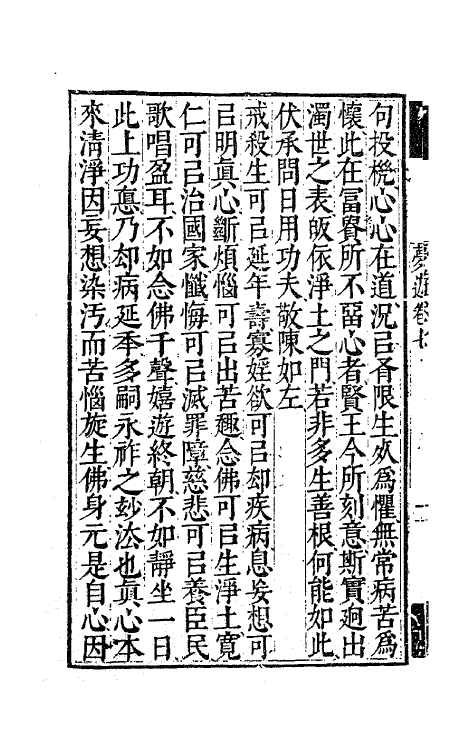 夢遊卷七
句投機心心在道況㠯有限生𣦸爲懼無常病苦爲
懷此在富貴所不畱心者賢王今所刻意斯實迥出
濁世之表皈依淨土之門若非多生善根何能如此
伏承問日用功夫敬陳如左
戒殺生可㠯延年壽寡婬欲可㠯却疾病息妄想可
㠯明眞心斷煩惱可㠯出苦趣念佛可㠯生淨土寬
仁可㠯治國家懺悔可㠯滅罪障慈悲可㠯養臣民
歌唱盈耳不如念佛千聲嬉遊終朝不如靜坐一日
此上功悳乃却病延秊多嗣永祚之玅法也眞心本
來淸淨因妄想染汚而苦惱旋生佛身元是自心因